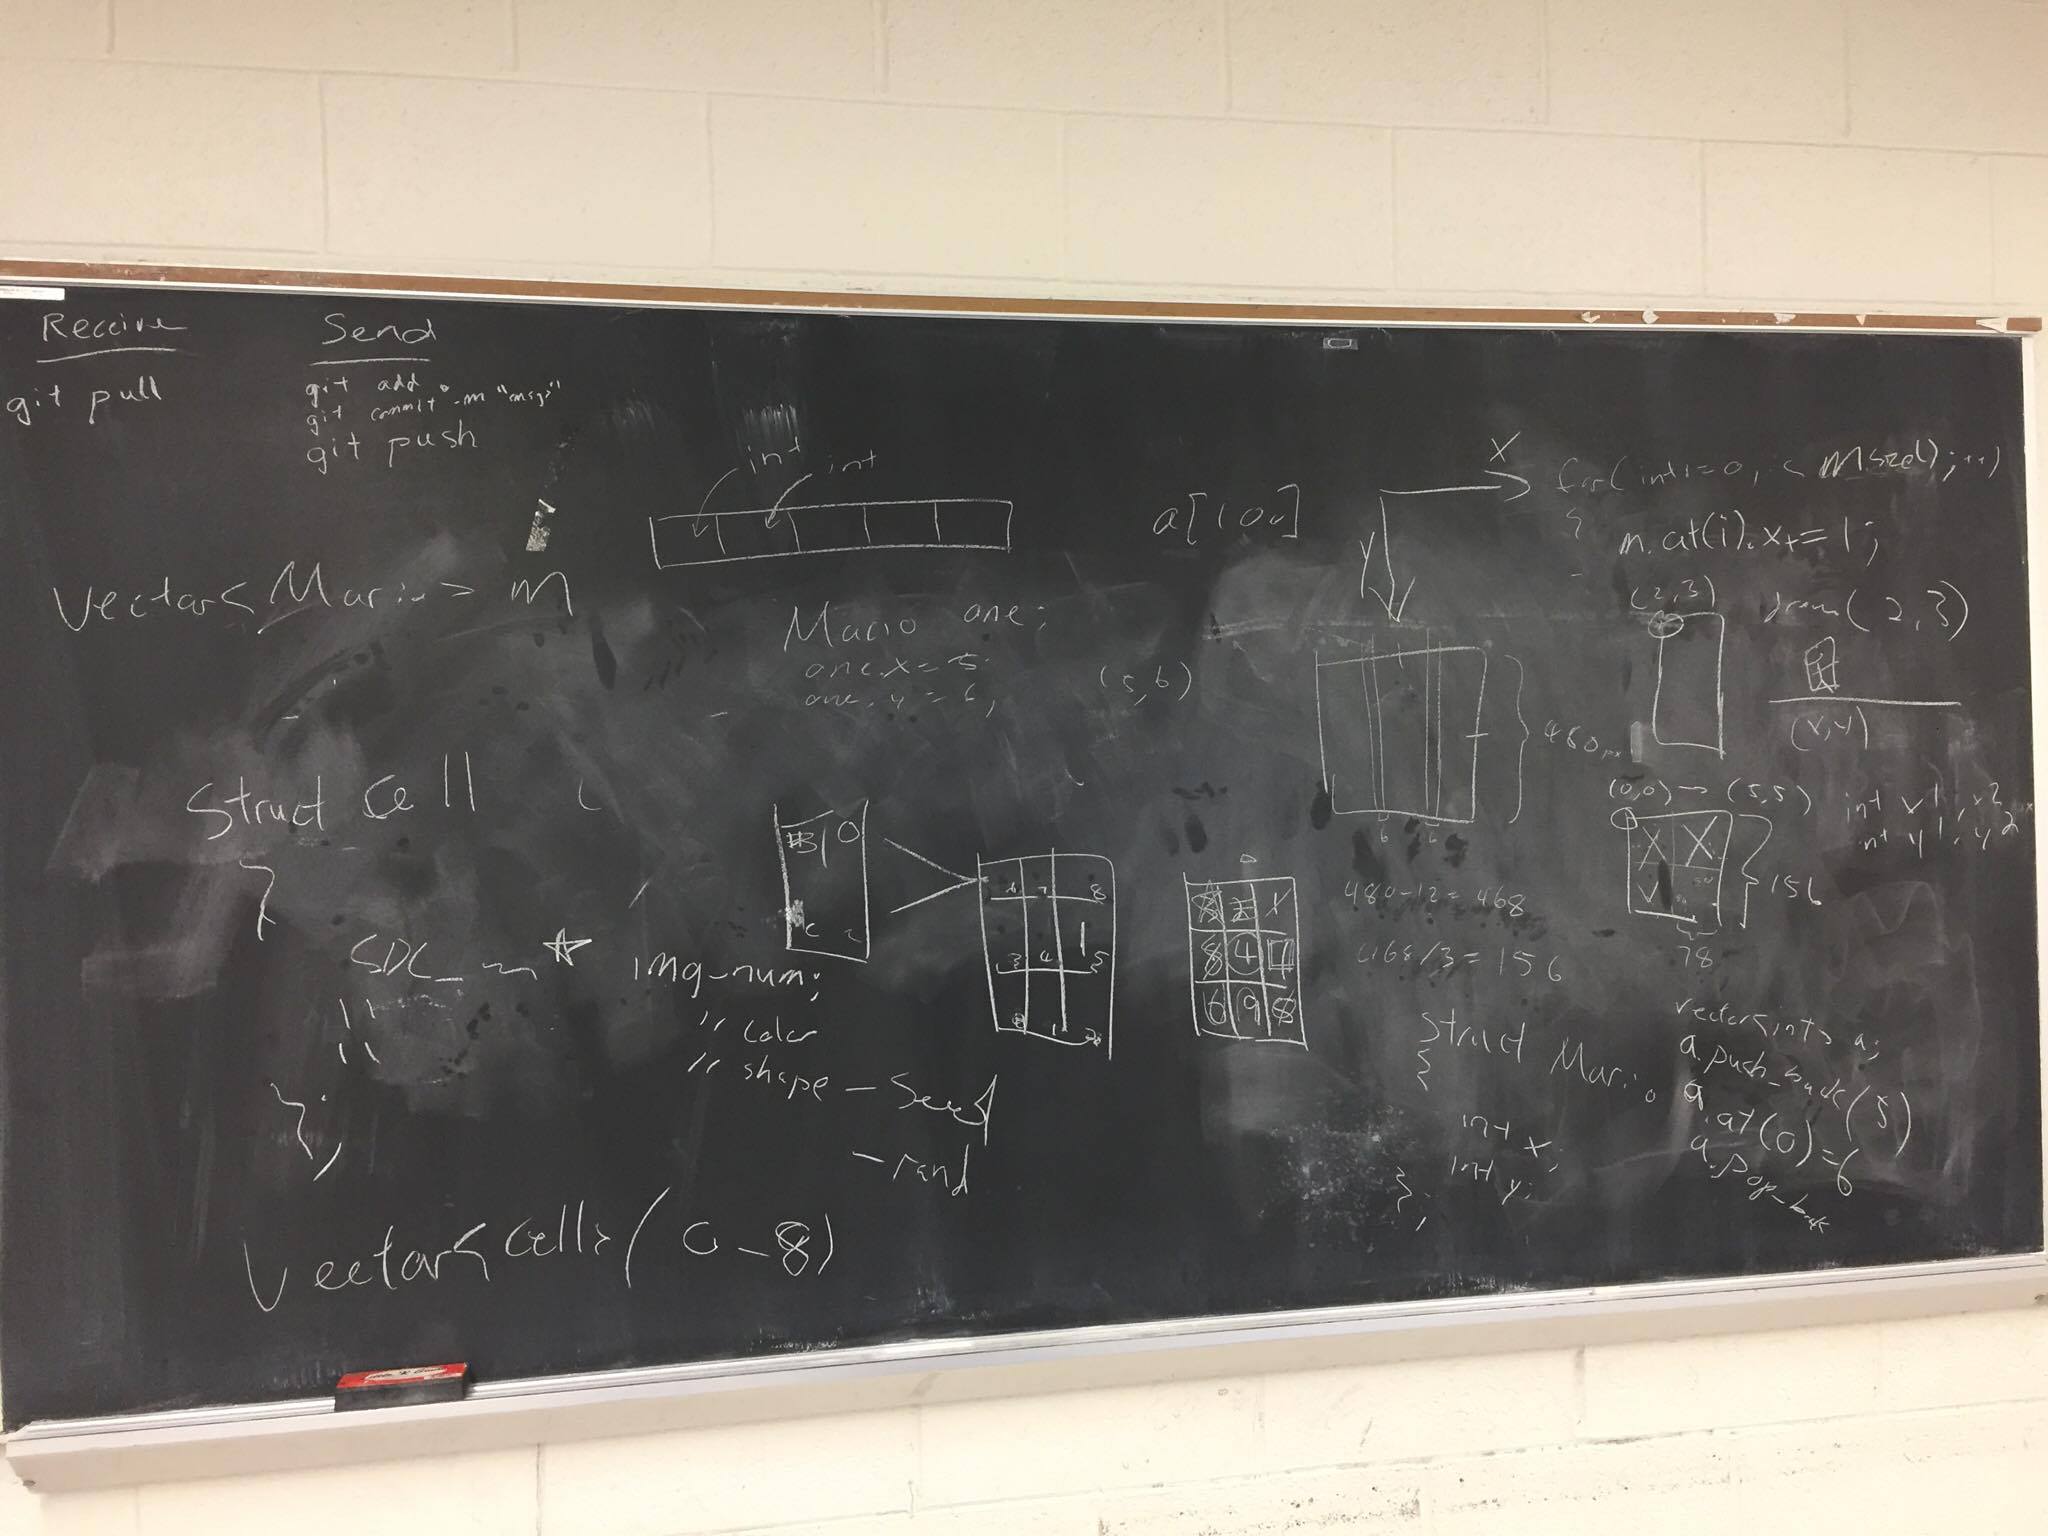 Receive
git pull
Send
git add .
git commit -m "msg"
git push
int int
a[100]
X
Y
for(int i=0, i< m.size(); i++)
{
m.at(i).x+=1;
vector<Mario> m
Mario one;
one.x=5;
one.y=6;
(5,6)
(2,3)
draw(2,3)
(x,y)
480px
6 6
480-12=468
468/3=156
(0,0) → (5,5)
int x1, x2
int y1, y2
X X
156
78
Struct Cell
{
SDL_ * img-num;
" " " color
" " " shape - Seed
- rand
};
Vector<cell>(0-8)
6 7 8
3 4 5
0 1 2
8 4 7
6 9 8
Struct Mario
{
int x;
int y;
};
vector<int> a;
a.push_back(5)
a.at(0)=6
a.pop_back